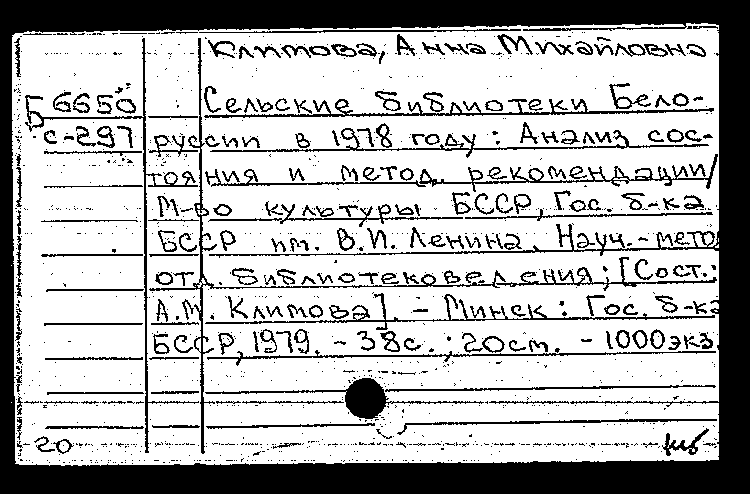 Климова, Анна Михайловна
Б 6650
с-297
Сельские библиотеки Бело-
руссии в 1978 году : Анализ сос-
тояния и метод. рекомендации/
М-во культуры БССР, Гос. б-ка
БССР им. В.И. Ленина. Науч.-метод
отд. библиотековедения; [Сост.:
А.М. Климова]. - Минск : Гос. б-ка
БССР, 1979. - 38с. ; 20см. - 1000экз.
20